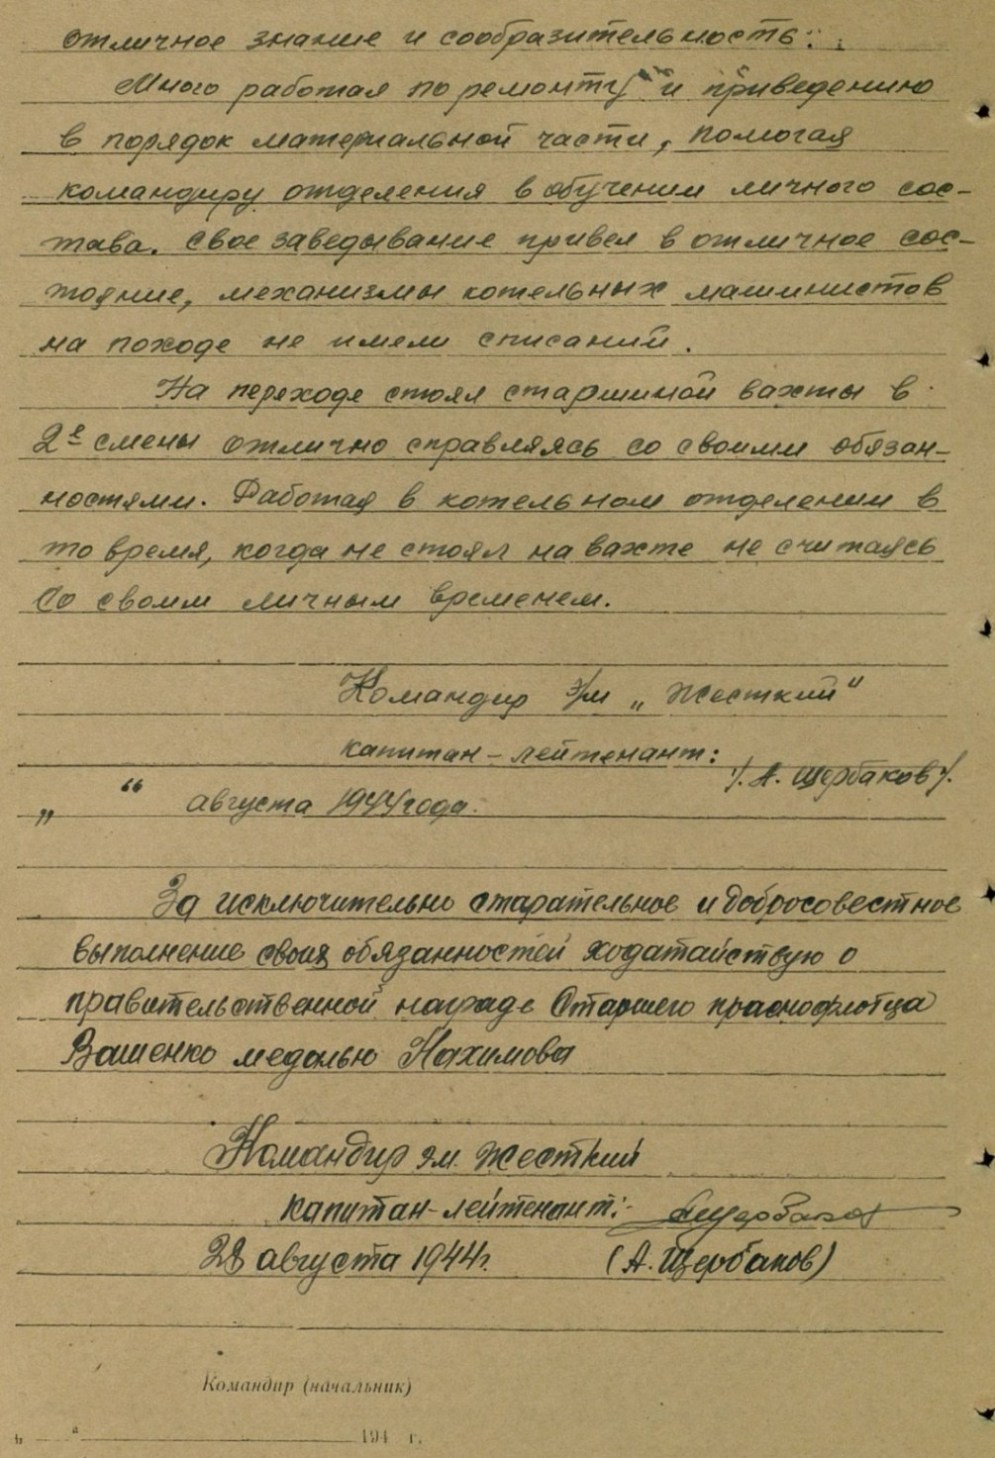 отличное знание и сообразительность.
Много работая по ремонту и приведению
в порядок материальной части, помогая
командиру отделения в обучении личного сос-
тава. Свое заведывание привел в отличное сос-
тояние, механизмы котельных машинистов
на походе не имели списаний.
На переходе стоял старшиной вахты в
2е смены отлично справляясь со своими обязан-
ностями. Работая в котельном отделении в
то время, когда не стоял на вахте не считаясь
со своим личным временем.
Командир э/м „Жесткий“
капитан-лейтенант:
/. А. Щербаков /.
„ “ августа 1944 года.
За исключительно старательное и добросовестное
выполнение своих обязанностей ходатайствую о
правительственной награде Старшего краснофлотца
Ващенко медалью Нахимова
Командир эм. Жесткий
капитан-лейтенант:- Щербаков
28 августа 1944г. (А. Щербаков)
Командир (начальник)
„ “ 194 г.